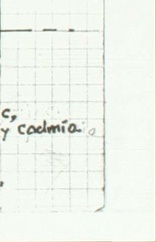 c,
y cadmia.